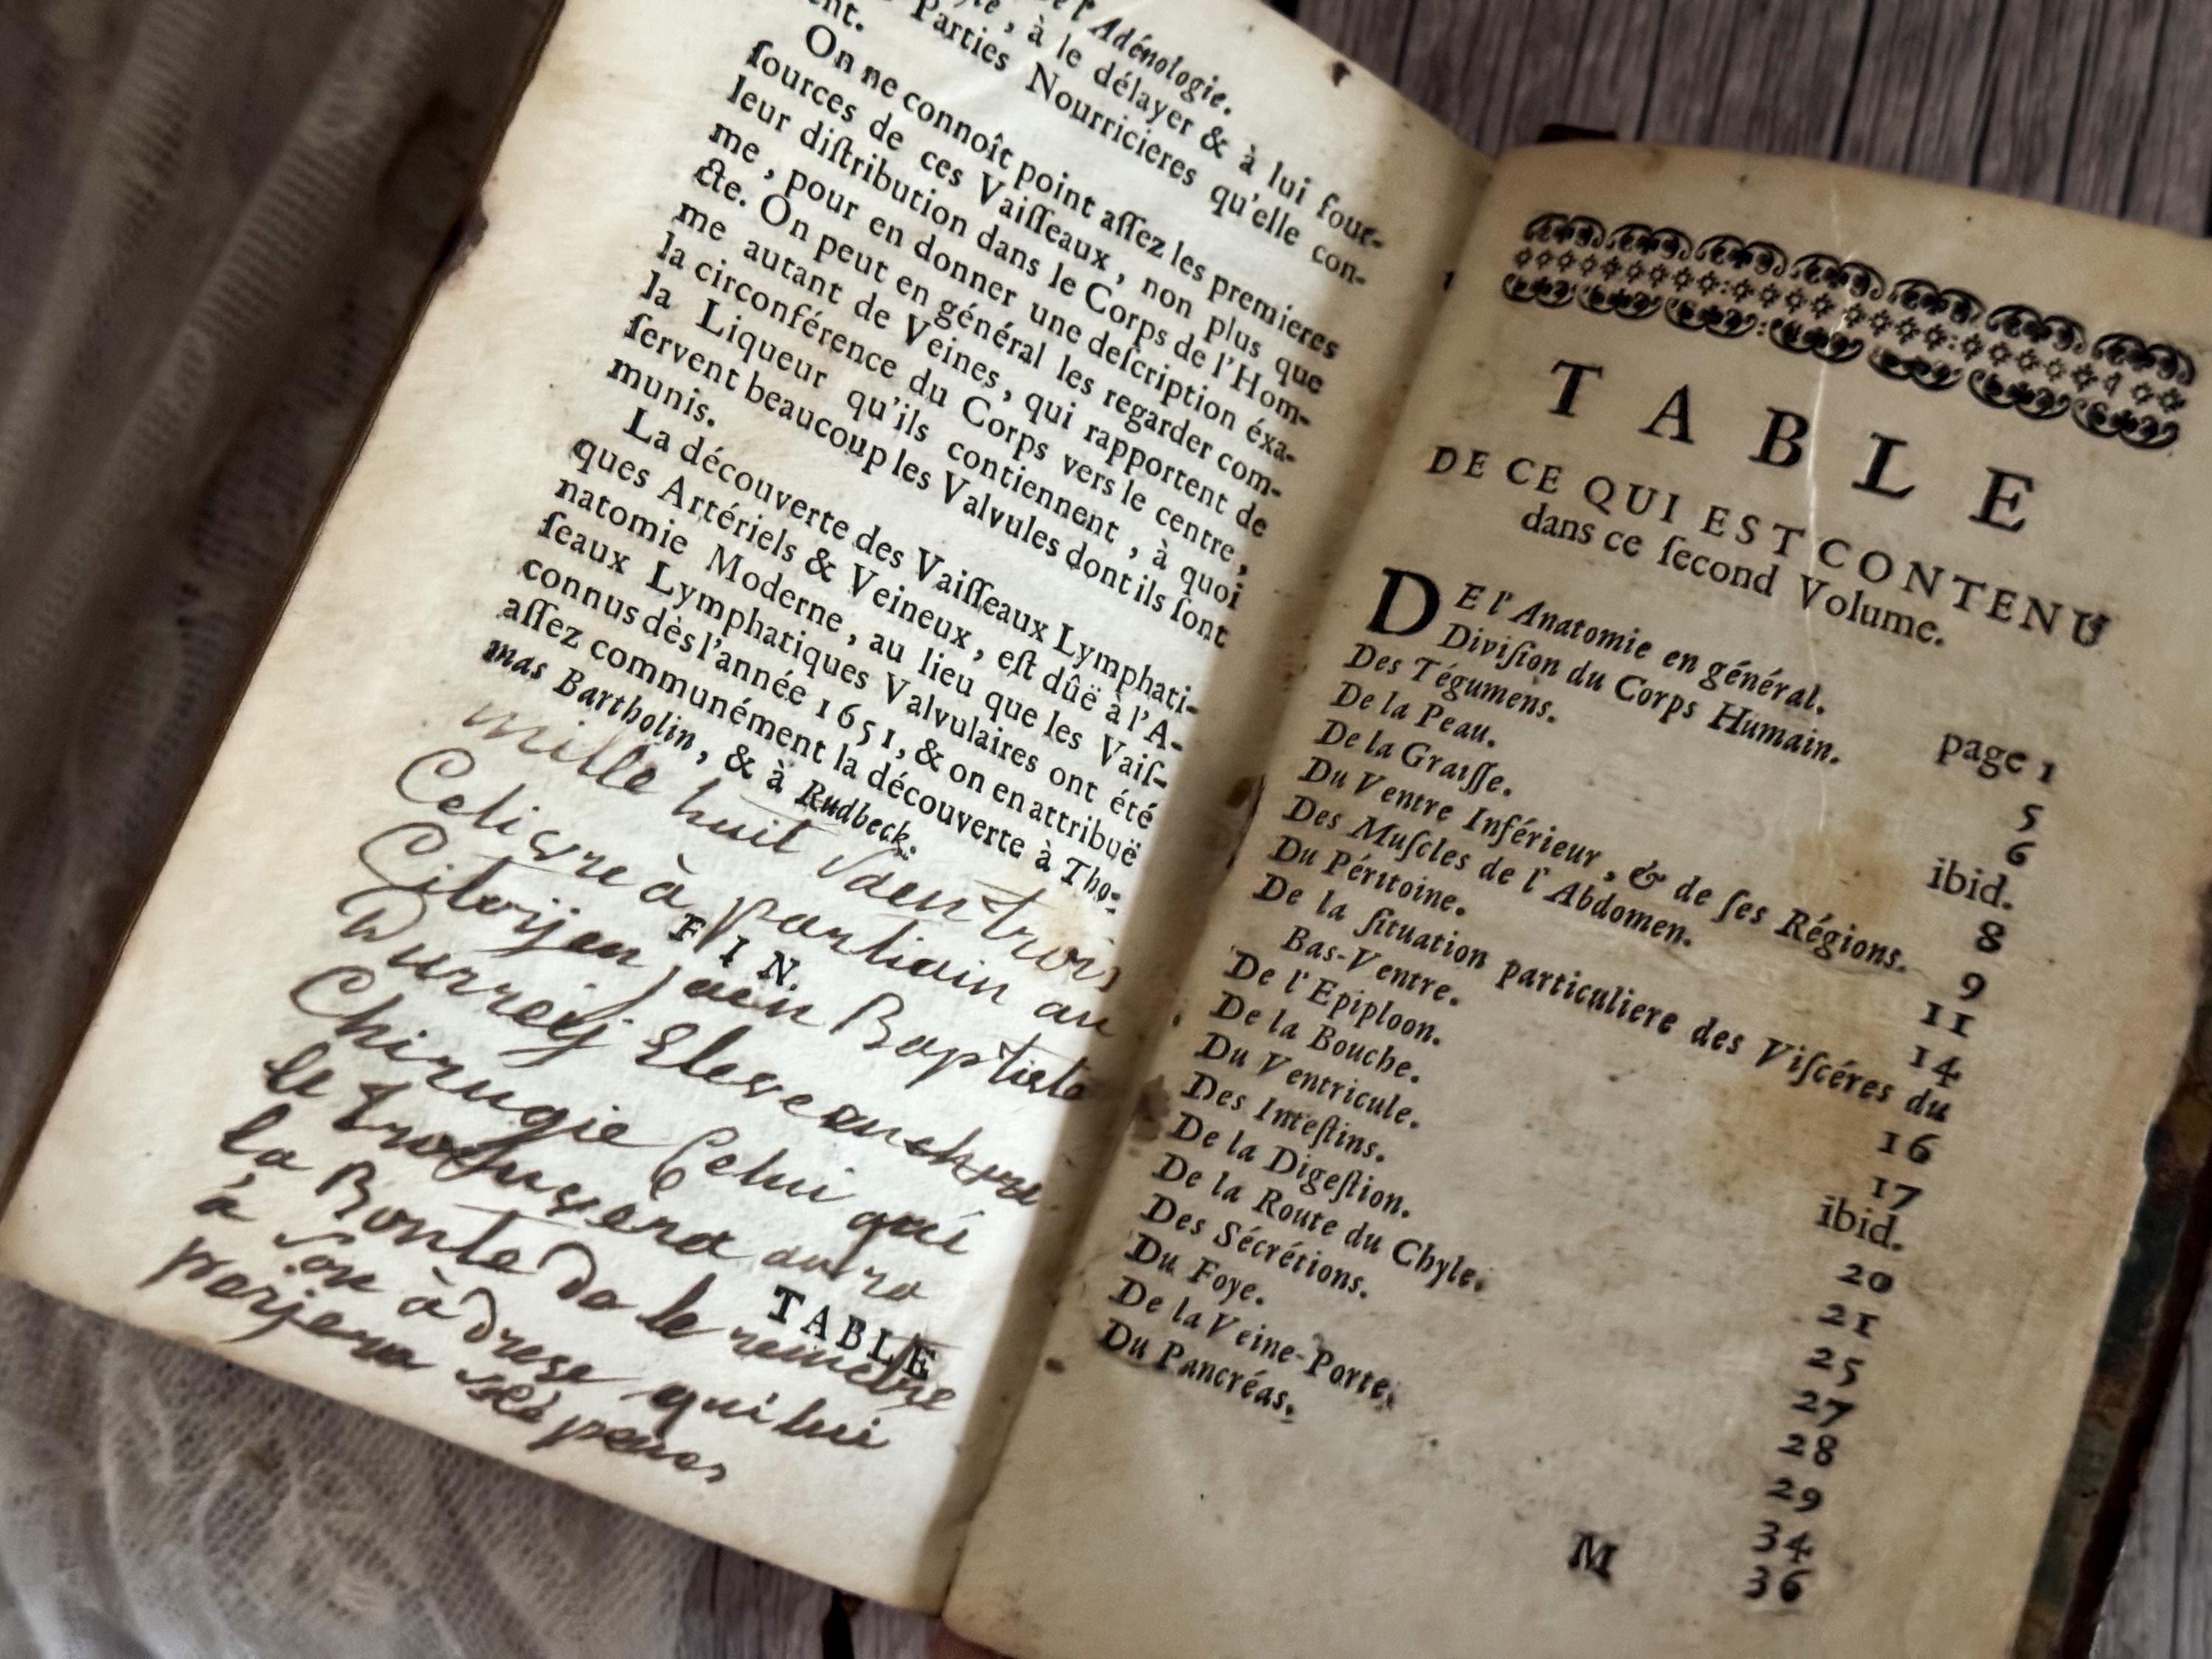 de l'Adénologie.
, à le délayer & à lui four-
Parties Nourricieres qu'elle con-
ent.
On ne connoît point aſſez les premieres
ſources de ces Vaiſſeaux, non plus que
leur diſtribution dans le Corps de l'Hom-
me, pour en donner une deſcription éxa-
cte. On peut en général les regarder com-
me autant de Veines, qui rapportent de
la circonférence du Corps vers le centre,
la Liqueur qu'ils contiennent, à quoi
ſervent beaucoup les Valvules dont ils ſont
munis.
La découverte des Vaiſſeaux Lymphati-
ques Artériels & Veineux, eſt dûë à l'A-
natomie Moderne, au lieu que les Vaiſ-
ſeaux Lymphatiques Valvulaires ont été
connus dès l'année 1651, & on en attribuë
aſſez communément la découverte à Tho-
mas Bartholin, & à Rudbeck.
mille huit Vaen trois
Celivre à partiain au
Citoijen jaen Baptiste
Durreij Eleve
Chirugie Celui qui
le trouvera aura
la Bonte de le remetre
à son àdrese qui lui
paijera
FIN.
TABLE
TABLE
DE CE QUI EST CONTENU
dans ce ſecond Volume.
DE l'Anatomie en général. page 1
Diviſion du Corps Humain. 5
Des Tégumens. 6
De la Peau. ibid.
De la Graiſſe. 8
Du Ventre Inférieur, & de ſes Régions. 9
Des Muſcles de l'Abdomen. 11
Du Péritoine. 14
De la ſituation particuliere des Viſcéres du
Bas-Ventre. 16
De l'Epiploon. 17
De la Bouche. ibid.
Du Ventricule. 20
Des Inteſtins. 21
De la Digeſtion. 25
De la Route du Chyle. 27
Des Sécrétions. 28
Du Foye. 29
De la Veine-Porte. 34
Du Pancréas. 36
M